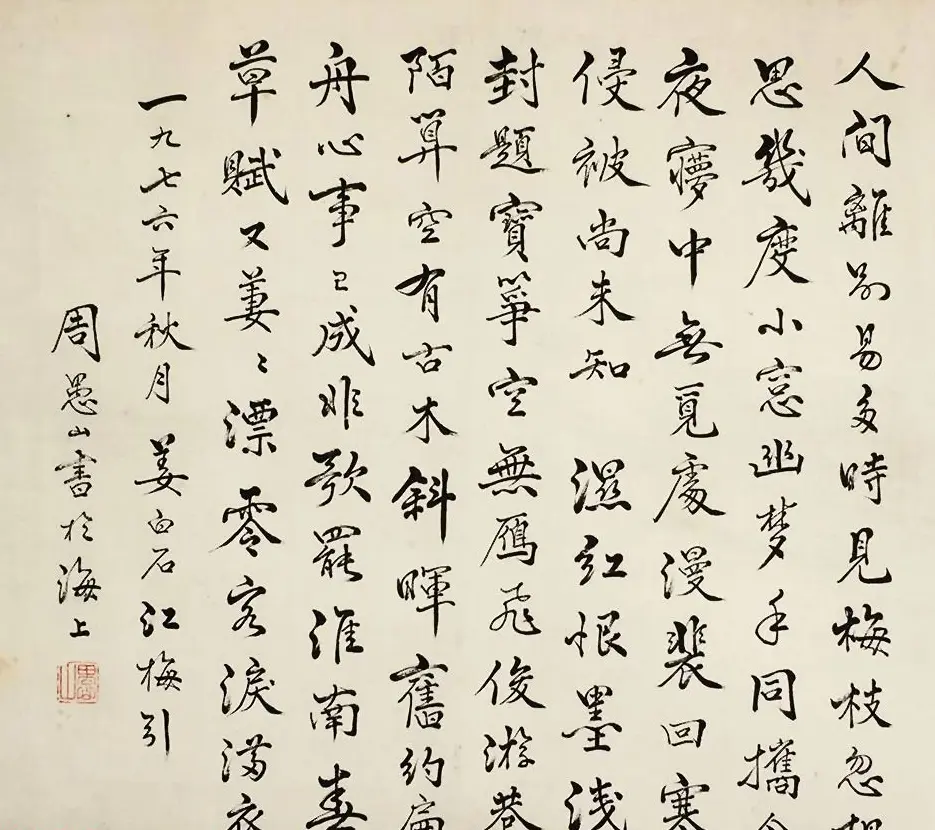 人間離别易多時見梅枝忽相
思幾度小窓幽梦手同攜今
夜夢中無覓處漫裴回寒
侵被尚未知 濕紅恨墨淺
封題寶箏空無鴈飛俊游巷
陌算空有古木斜暉舊約扁
舟心事已成非歌罷淮南春
草賦又萋〻漂零客淚滿衣
一九七六年秋月姜白石江梅引
周愚山書於海上